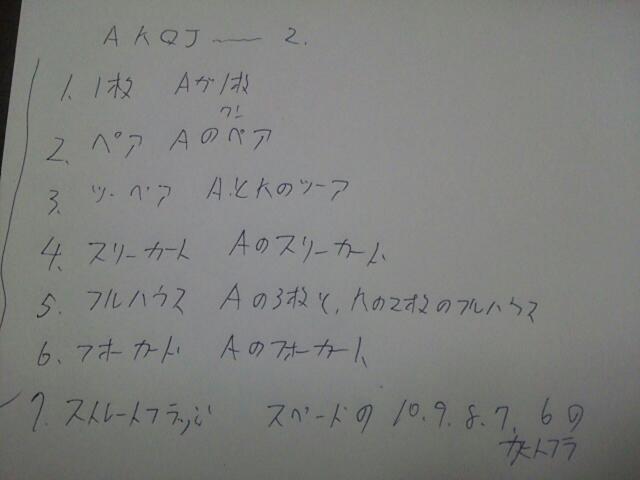 A K Q J ― 2.
1. 1枚 Aが1枚
ワン
2. ペア Aのペア
3. ツーペア AとKのツーア
4. スリーカート Aのスリーカート
5. フルハウス Aの3枚と、Kの2枚のフルハウス
6. フオーカード Aのフォーカート
7. ストレートフラッシ スペードの 10.9.8.7.6の